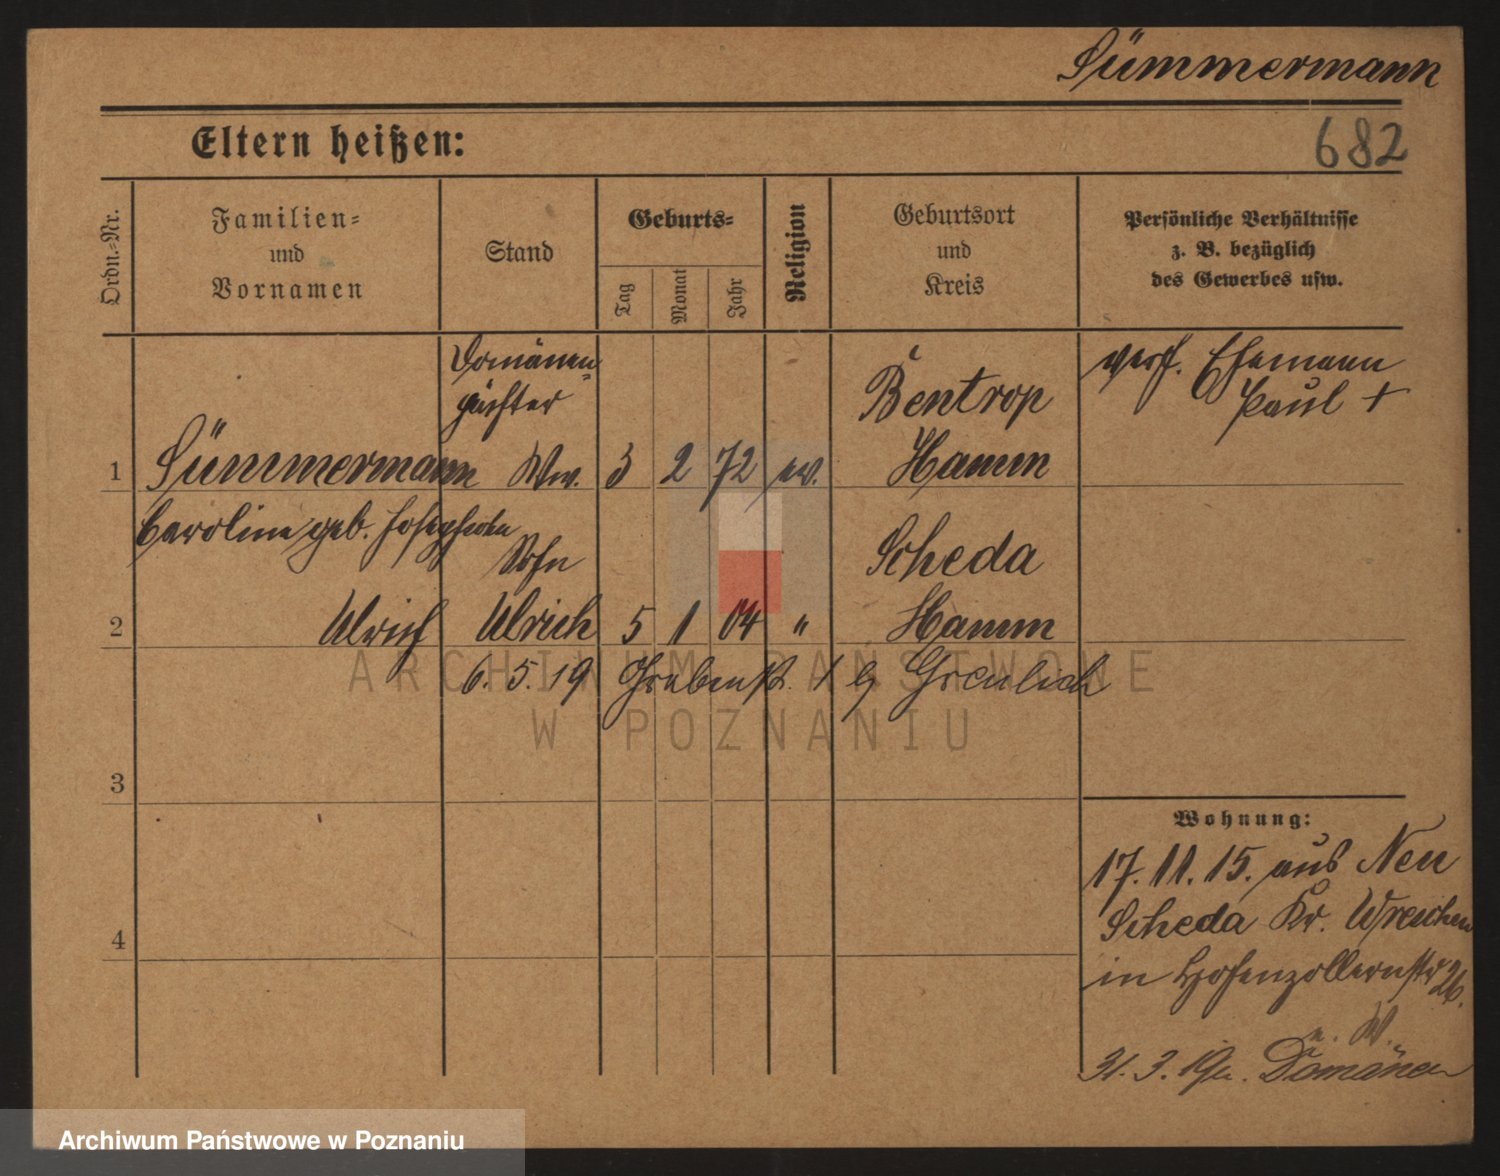 Sümmermann
Eltern heißen:
682
Ordn.-Nr.
Familien-
und
Vornamen
Stand
Geburts-
Tag
Monat
Jahr
Religion
Geburtsort
und
Kreis
Persönliche Verhältnisse
z. B. bezüglich
des Gewerbes usw.
Domänen-
pächter
Bentrop
Ehemann
Paul +
1 Sümmermann Ww. 3 2 72 ev. Hamm
Caroline geb.
Sohn
Scheda
2 Ulrich Ulrich 5 1 04 " Hamm
6. 5. 19 Grabenstr. 1 b Greulich
ARCHIWUM PAŃSTWOWE
W POZNANIU
3
Wohnung:
17. 11. 15. aus Neu
Scheda Kr. Wreschen
in Hohenzollernstr 26.
4
31. 3. Domänen
Archiwum Państwowe w Poznaniu